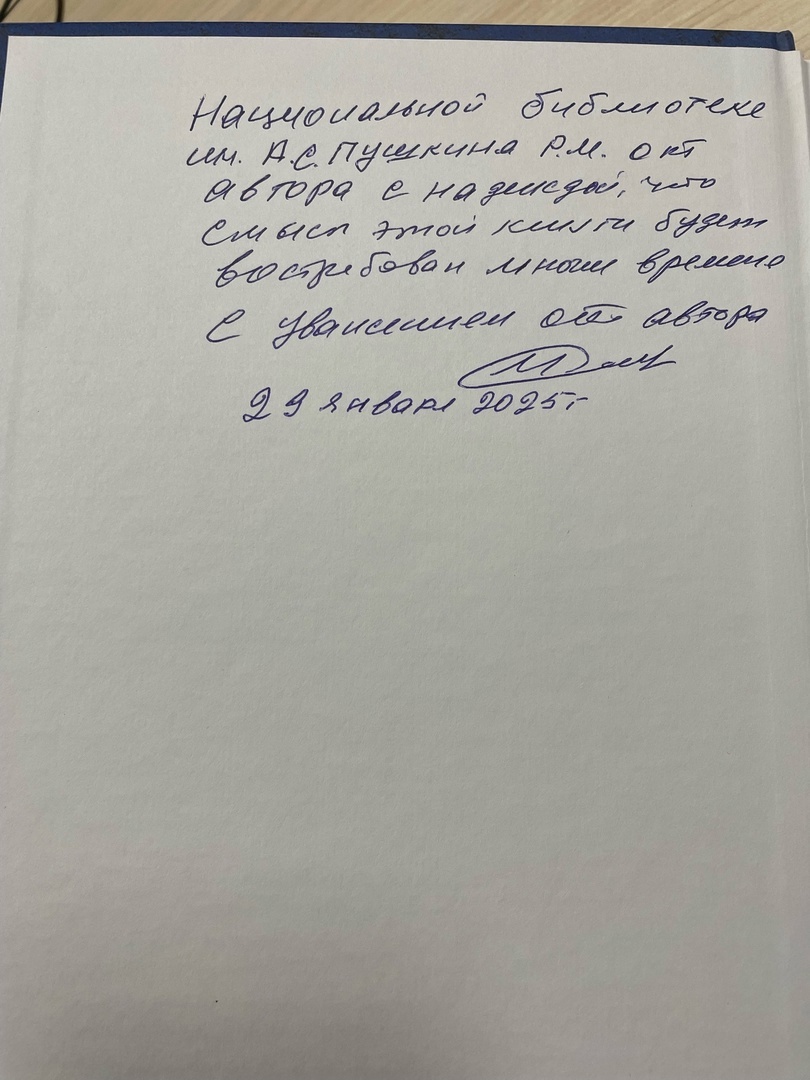 Национальной библиотеке
им. А.С. Пушкина Р.М. от
автора с надеждой, что
смысл этой книги будет
востребован многие времена
С уважением от автора
29 января 2025г